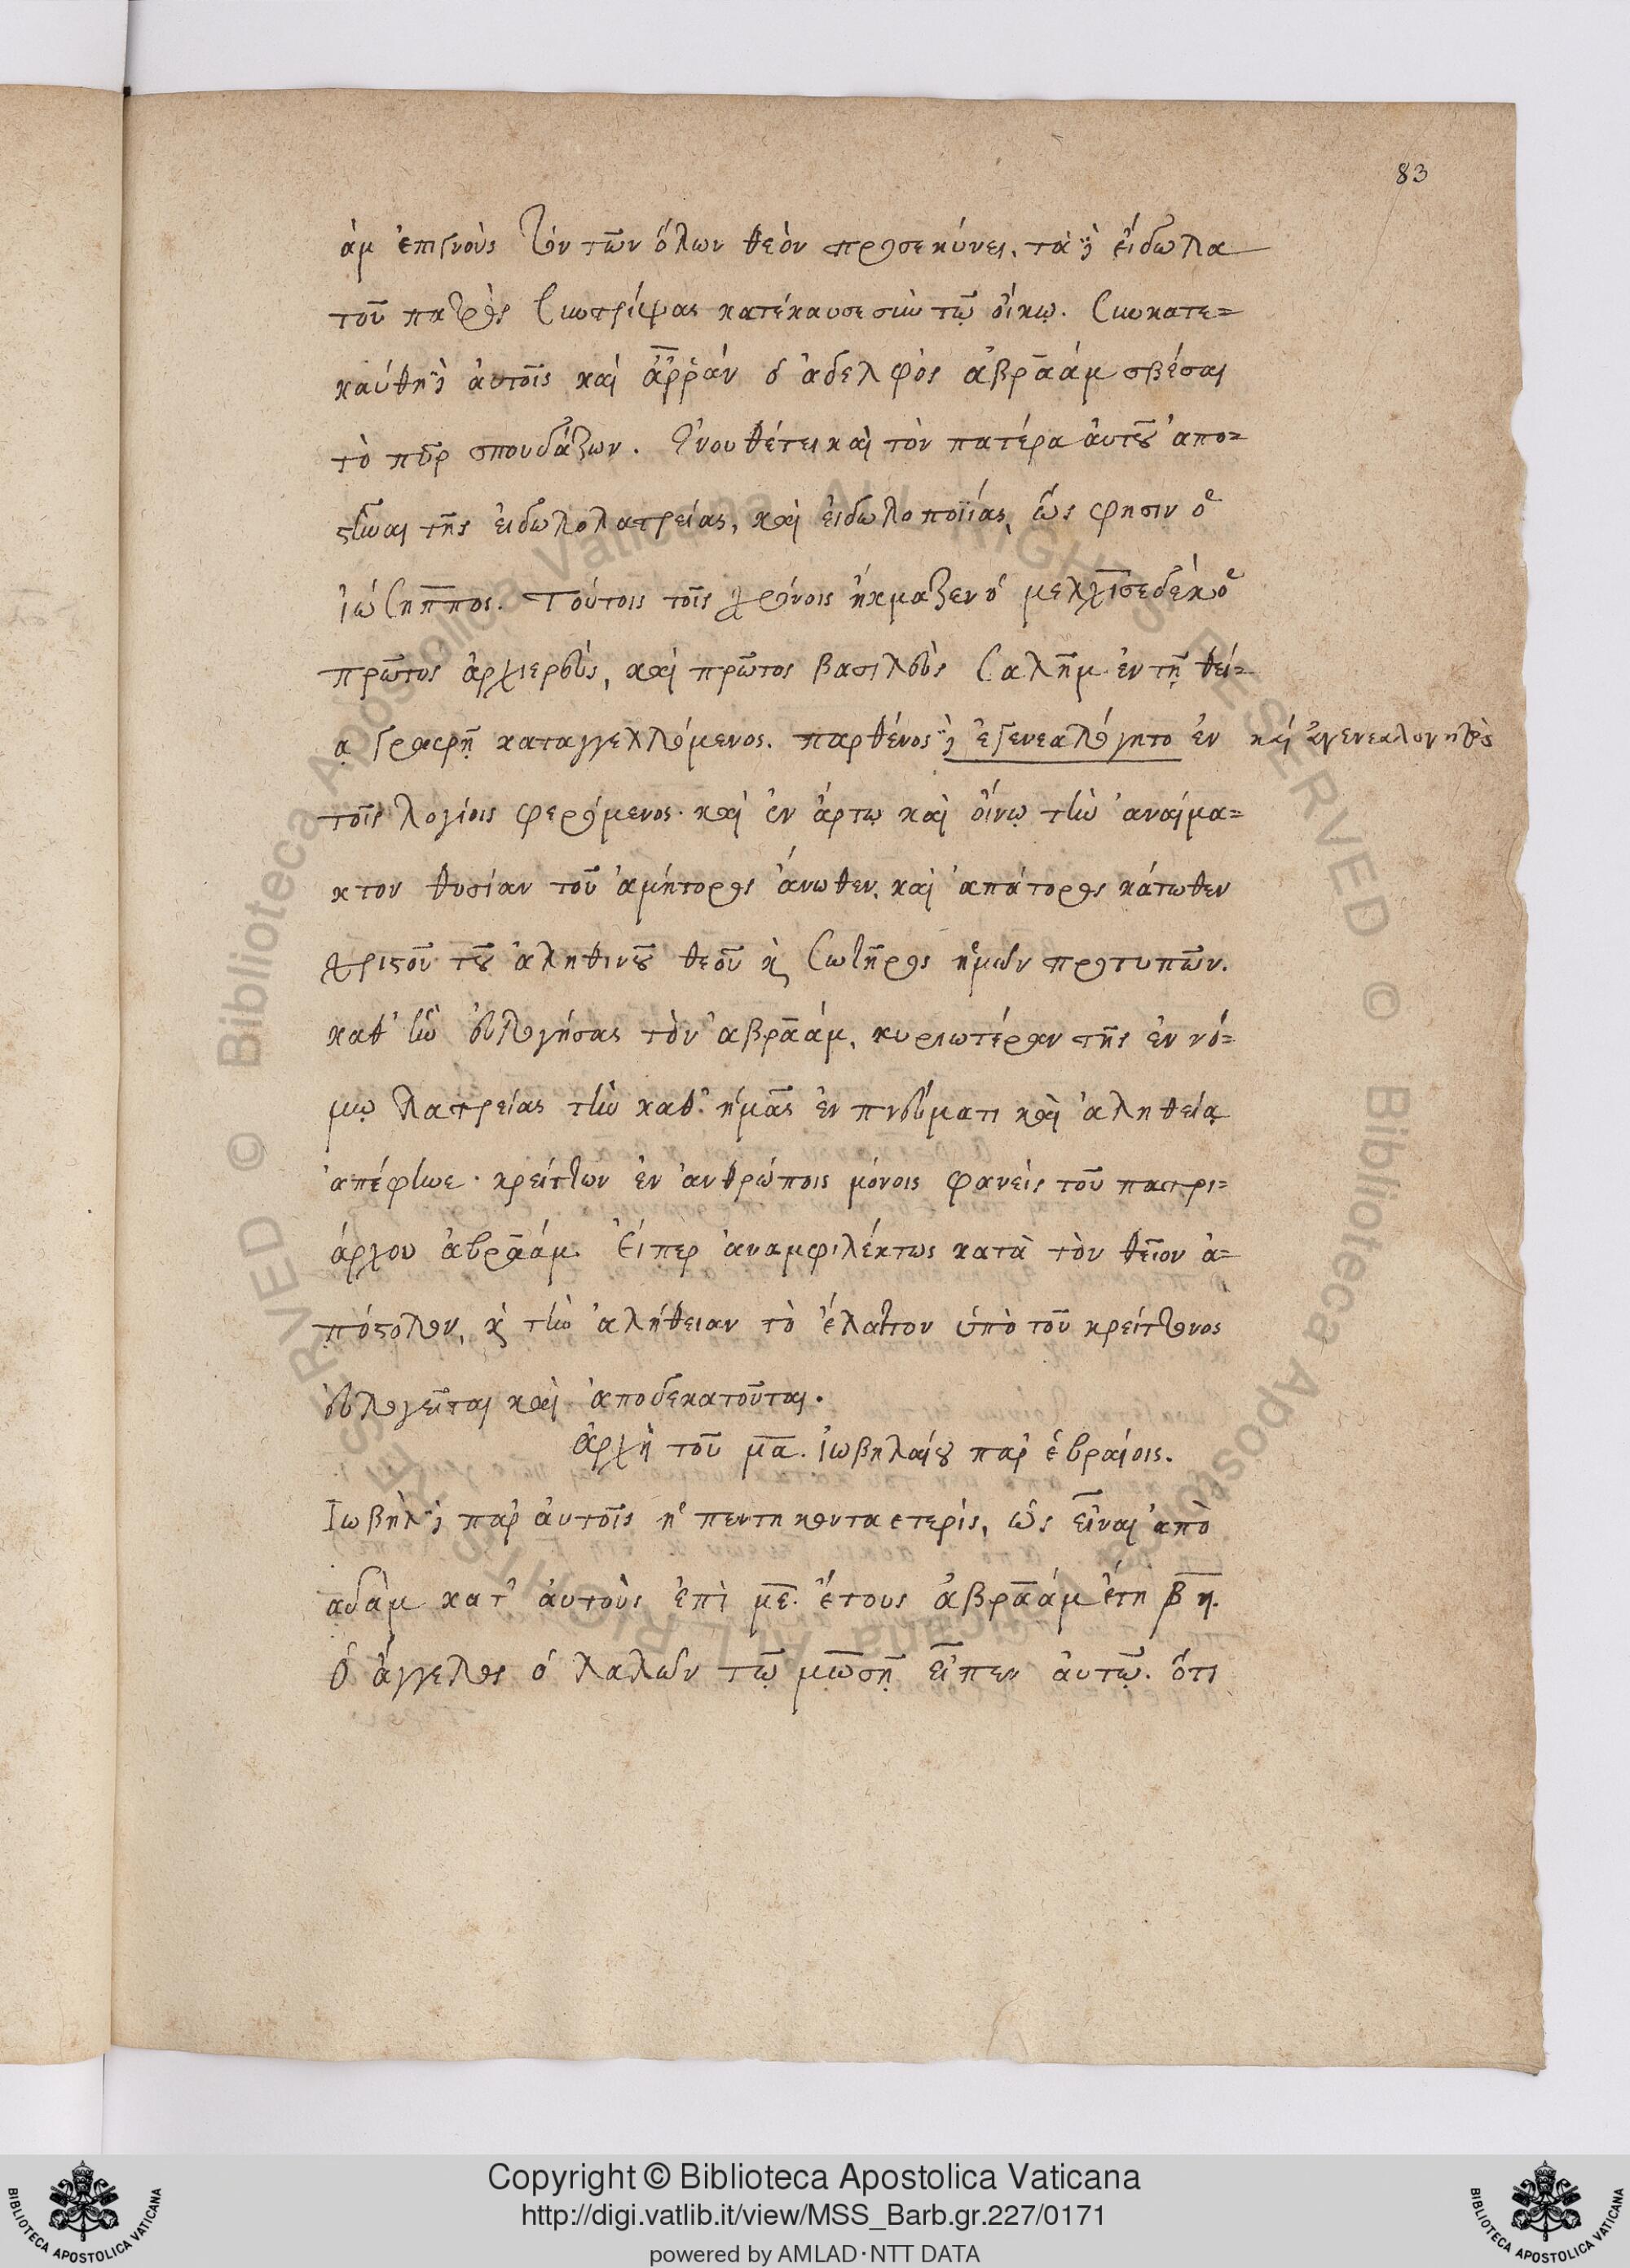 83
ὰμ ἐπιγνοὺς τὸν τῶν ὅλων θεὸν προσεκύνει, τὰ δὲ εἴδωλα
τοῦ πατρὸς συντρίψας κατέκαυσε σὺν τῷ οἴκῳ. συνκατε=
καύθη δὲ αὐτοῖς καὶ ἀρράν ὁ ἀδελφὸς ἀβραάμ σβέσαι
τὸ πῦρ σπουδάζων. ἐνουθέτει καὶ τὸν πατέρα αὐτοῦ ἀπο=
στῆναι τῆς εἰδωλολατρείας, καὶ εἰδωλοποιΐας, ὥς φησιν ὁ
ἰώσηππος. Τούτοις τοῖς χρόνοις ἤκμαζεν ὁ μελχισεδὲκ ὁ
πρῶτος ἀρχιερεὺς, καὶ πρῶτος βασιλεὺς Σαλὴμ ἐν τῇ θεί=
ᾳ γραφῇ καταγγελλόμενος. παρθένος δὲ ἐγενεαλόγητο ἐν
καὶ ἀγενεαλογητὸς
τοῖς λογίοις φερόμενος· καὶ ἐν ἄρτῳ καὶ οἴνῳ τὴν ἀναίμα=
κτον θυσίαν τοῦ ἀμήτορος ἄνωθεν, καὶ ἀπάτορος κάτωθεν
χριστοῦ τοῦ ἀληθινοῦ θεοῦ καὶ Σωτῆρος ἡμῶν προτυπῶν.
καθ' ἣν εὐλογήσας τὸν ἀβραάμ, κυριωτέραν τῆς ἐν νό=
μῳ λατρείας τὴν καθ' ἡμᾶς ἐν πνεύματι καὶ ἀληθείᾳ
ἀπέφηνε· κρείττων ἐν ἀνθρώποις μόνοις φανεὶς τοῦ πατρι=
άρχου ἀβραάμ. Εἴπερ ἀναμφιλέκτως κατὰ τὸν θεῖον ἀ=
πόστολον, καὶ τὴν ἀλήθειαν τὸ ἔλαττον ὑπὸ τοῦ κρείττονος
εὐλογεῖται καὶ ἀποδεκατοῦται.
ἀρχὴ τοῦ μα. ἰωβηλαίου παρ' ἑβραίοις.
Ἰωβὴλ δὲ παρ' αὐτοῖς ἡ πεντηκονταετερίς, ὡς εἶναι ἀπὸ
ἀδὰμ κατ' αὐτοὺς ἐπὶ με. ἔτους ἀβραάμ ἔτη βη.
Ὁ ἄγγελος ὁ λαλῶν τῷ μωσῇ εἶπεν αὐτῷ. ὅτι
Copyright © Biblioteca Apostolica Vaticana
http://digi.vatlib.it/view/MSS_Barb.gr.227/0171
powered by AMLAD·NTT DATA